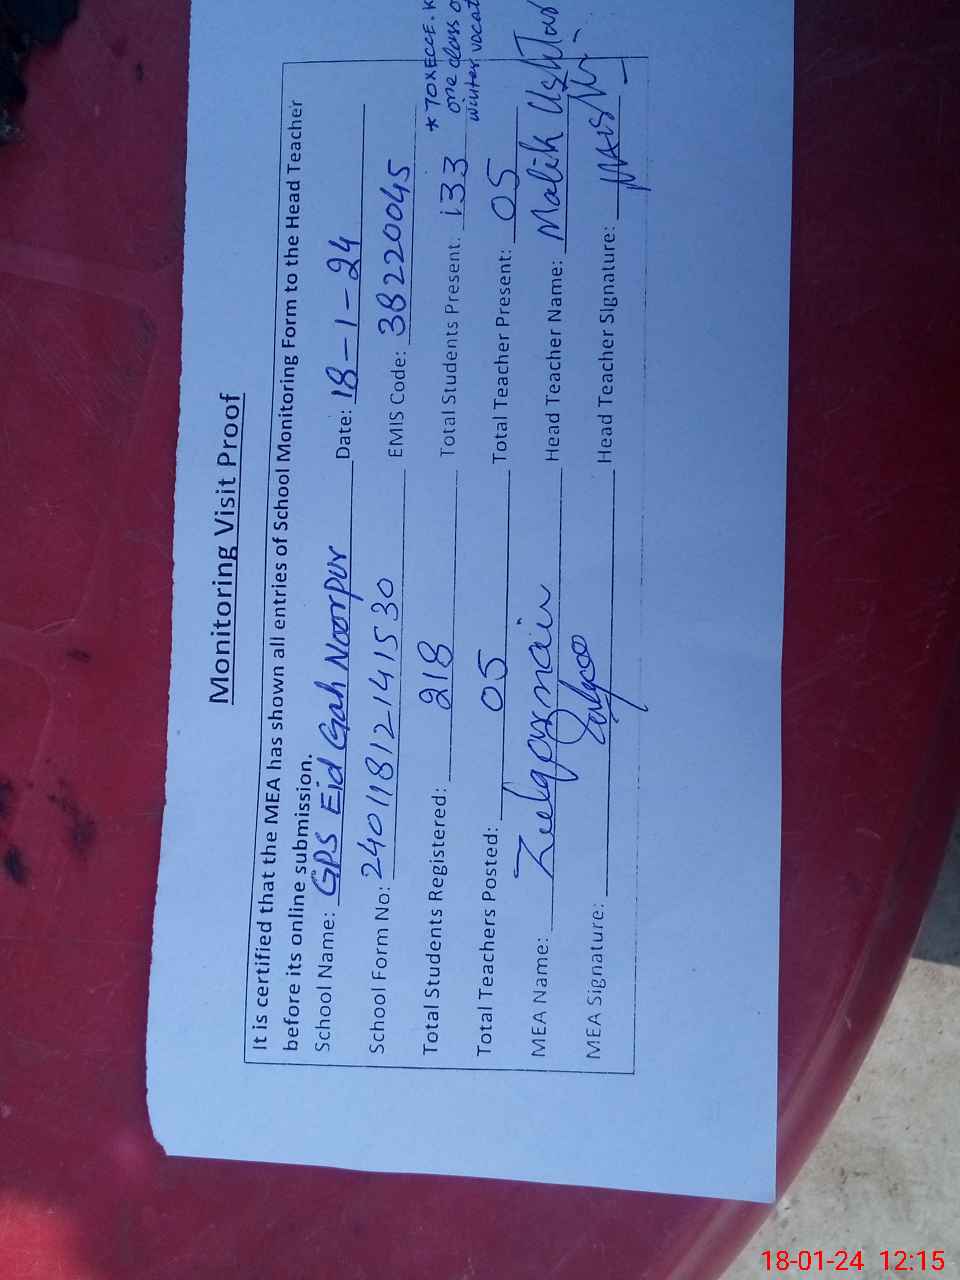 Monitoring Visit Proof
It is certified that the MEA has shown all entries of School Monitoring Form to the Head Teacher
before its online submission.
School Name: GPS Eid Gah Noorpur Date: 18-1-24
School Form No: 2401181214 1530 EMIS Code: 38220045
Total Students Registered: 218 Total Students Present: 133
Total Teachers Posted: 05 Total Teacher Present: 05
MEA Name: Zulqarnain Head Teacher Name: Malik
MEA Signature: Head Teacher Signature:
one class
winter
18-01-24 12:15